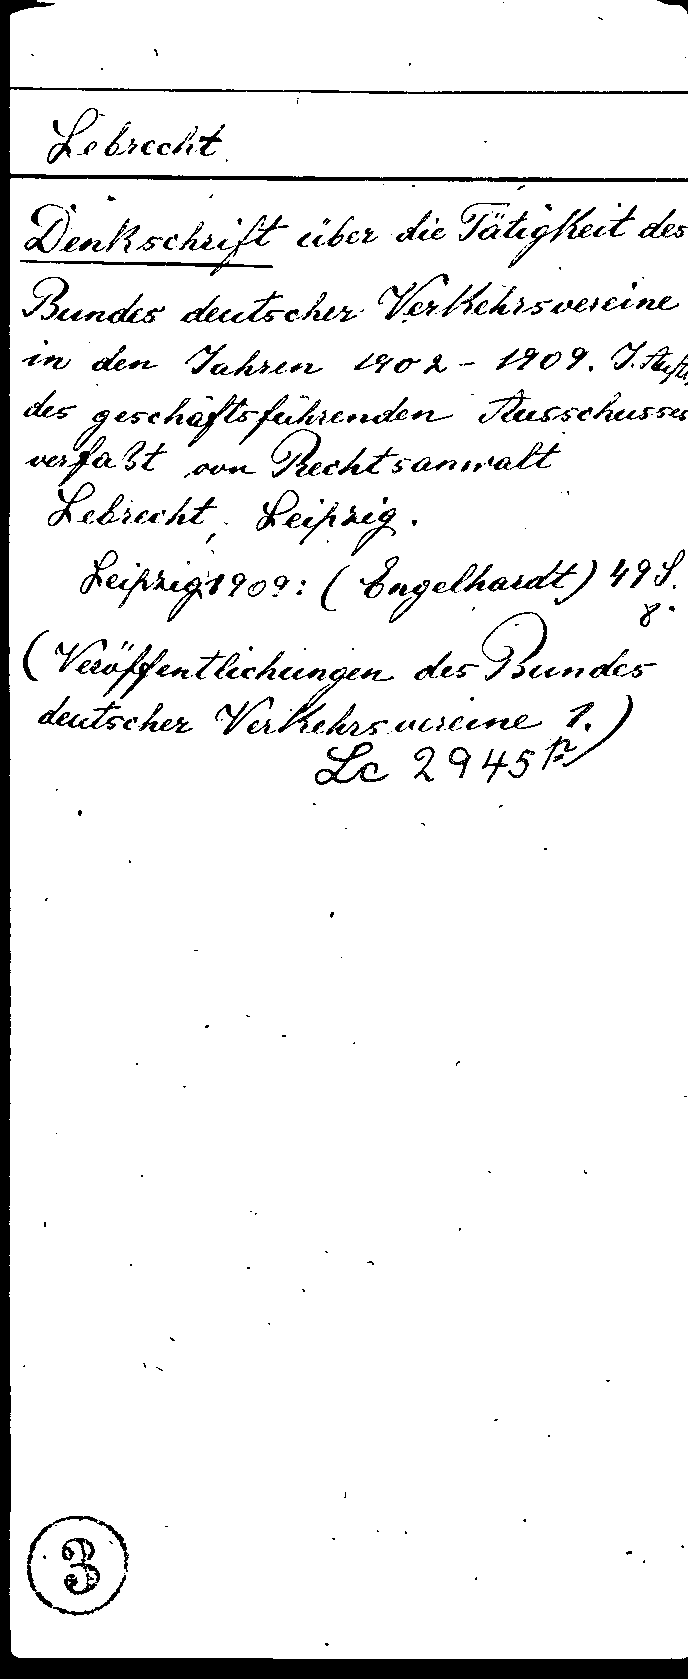 Lebrecht
Denkschrift über die Tätigkeit des
Bundes deutscher Verkehrsvereine
in den Jahren 1902 - 1909. J. Auftr.
des geschäftsführenden Ausschusses
verfaßt von Rechtsanwalt
Lebrecht, Leipzig.
Leipzig 1909: (Engelhardt) 49 S.
8°
(Veröffentlichungen des Bundes
deutscher Verkehrsvereine 1.)
Lc 2945
3